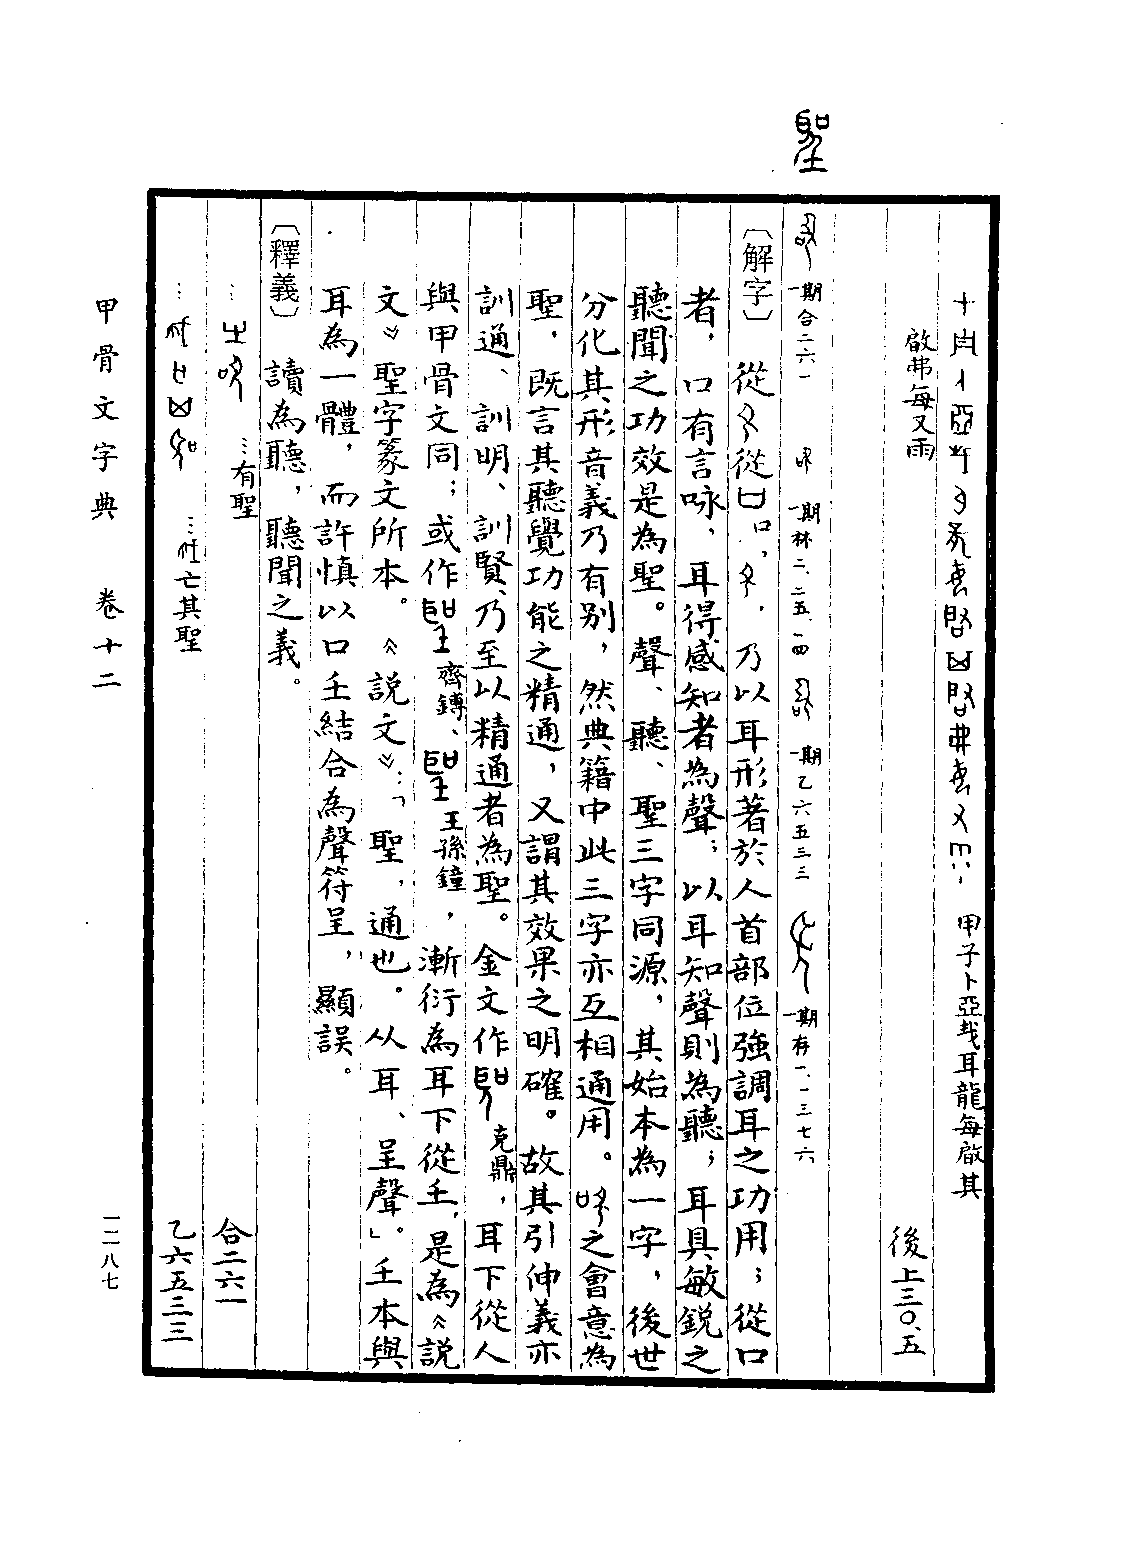 聖
甲子卜亞𢦏耳龍每啟其
啟弗每又雨
後上三〇.五
一期合二六一
一期林二、二五、一四
一期乙六五三三
一期存一、一三七六
〔解字〕從從口口,,乃以耳形著於人首部位強調耳之功用;從口
者,口有言咏,耳得感知者為聲;以耳知聲則為聽;耳具敏銳之
聽聞之功效是為聖。聲、聽、聖三字同源,其始本為一字,後世
分化其形音義乃有別,然典籍中此三字亦互相通用。之會意為
聖,既言其聽覺功能之精通,又謂其效果之明確。故其引伸義亦
訓通、訓明、訓賢、乃至以精通者為聖。金文作克鼎,耳下從人
與甲骨文同;或作齊鎛、王孫鐘,漸衍為耳下從𡈼,是為《說
文》聖字篆文所本。《說文》:「聖,通也。从耳、呈聲」。𡈼本與
耳為一體,而許慎以口𡈼結合為聲符呈,顯誤。
〔釋義〕讀為聽,聽聞之義。
…有聖
合二六一
…亡其聖
乙六五三三
甲骨文字典 卷十二
一二八七